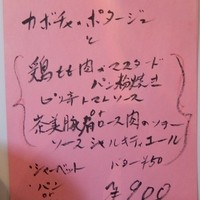 カボチャのポタージュ
と
鶏もも肉のマスタード
パン粉焼き
ピリ辛トマトソース
or
茶美豚肩ロース肉のソテー
ソースシャルキティエール
・シャーベット
・パン
or
バター¥50
¥900